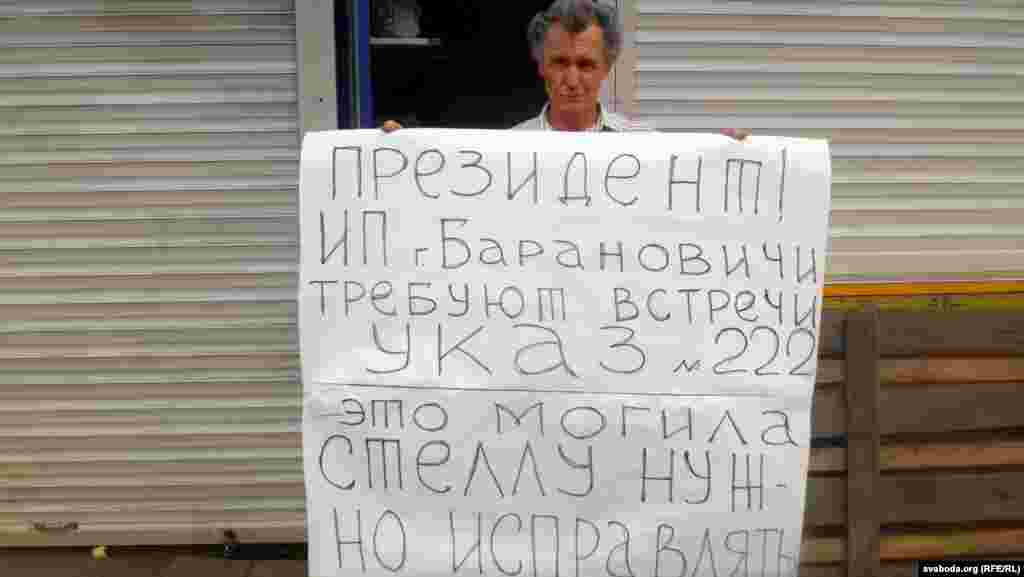 ПРЕЗИДЕНТ!
ИП г БАРАНОВИЧИ
ТРЕБУЮТ ВСТРЕЧИ
УКАЗ №222
ЭТО МОГИЛА
СТЕЛЛУ НУЖ-
НО ИСПРАВЛЯТЬ
svaboda.org (RFE/RL)